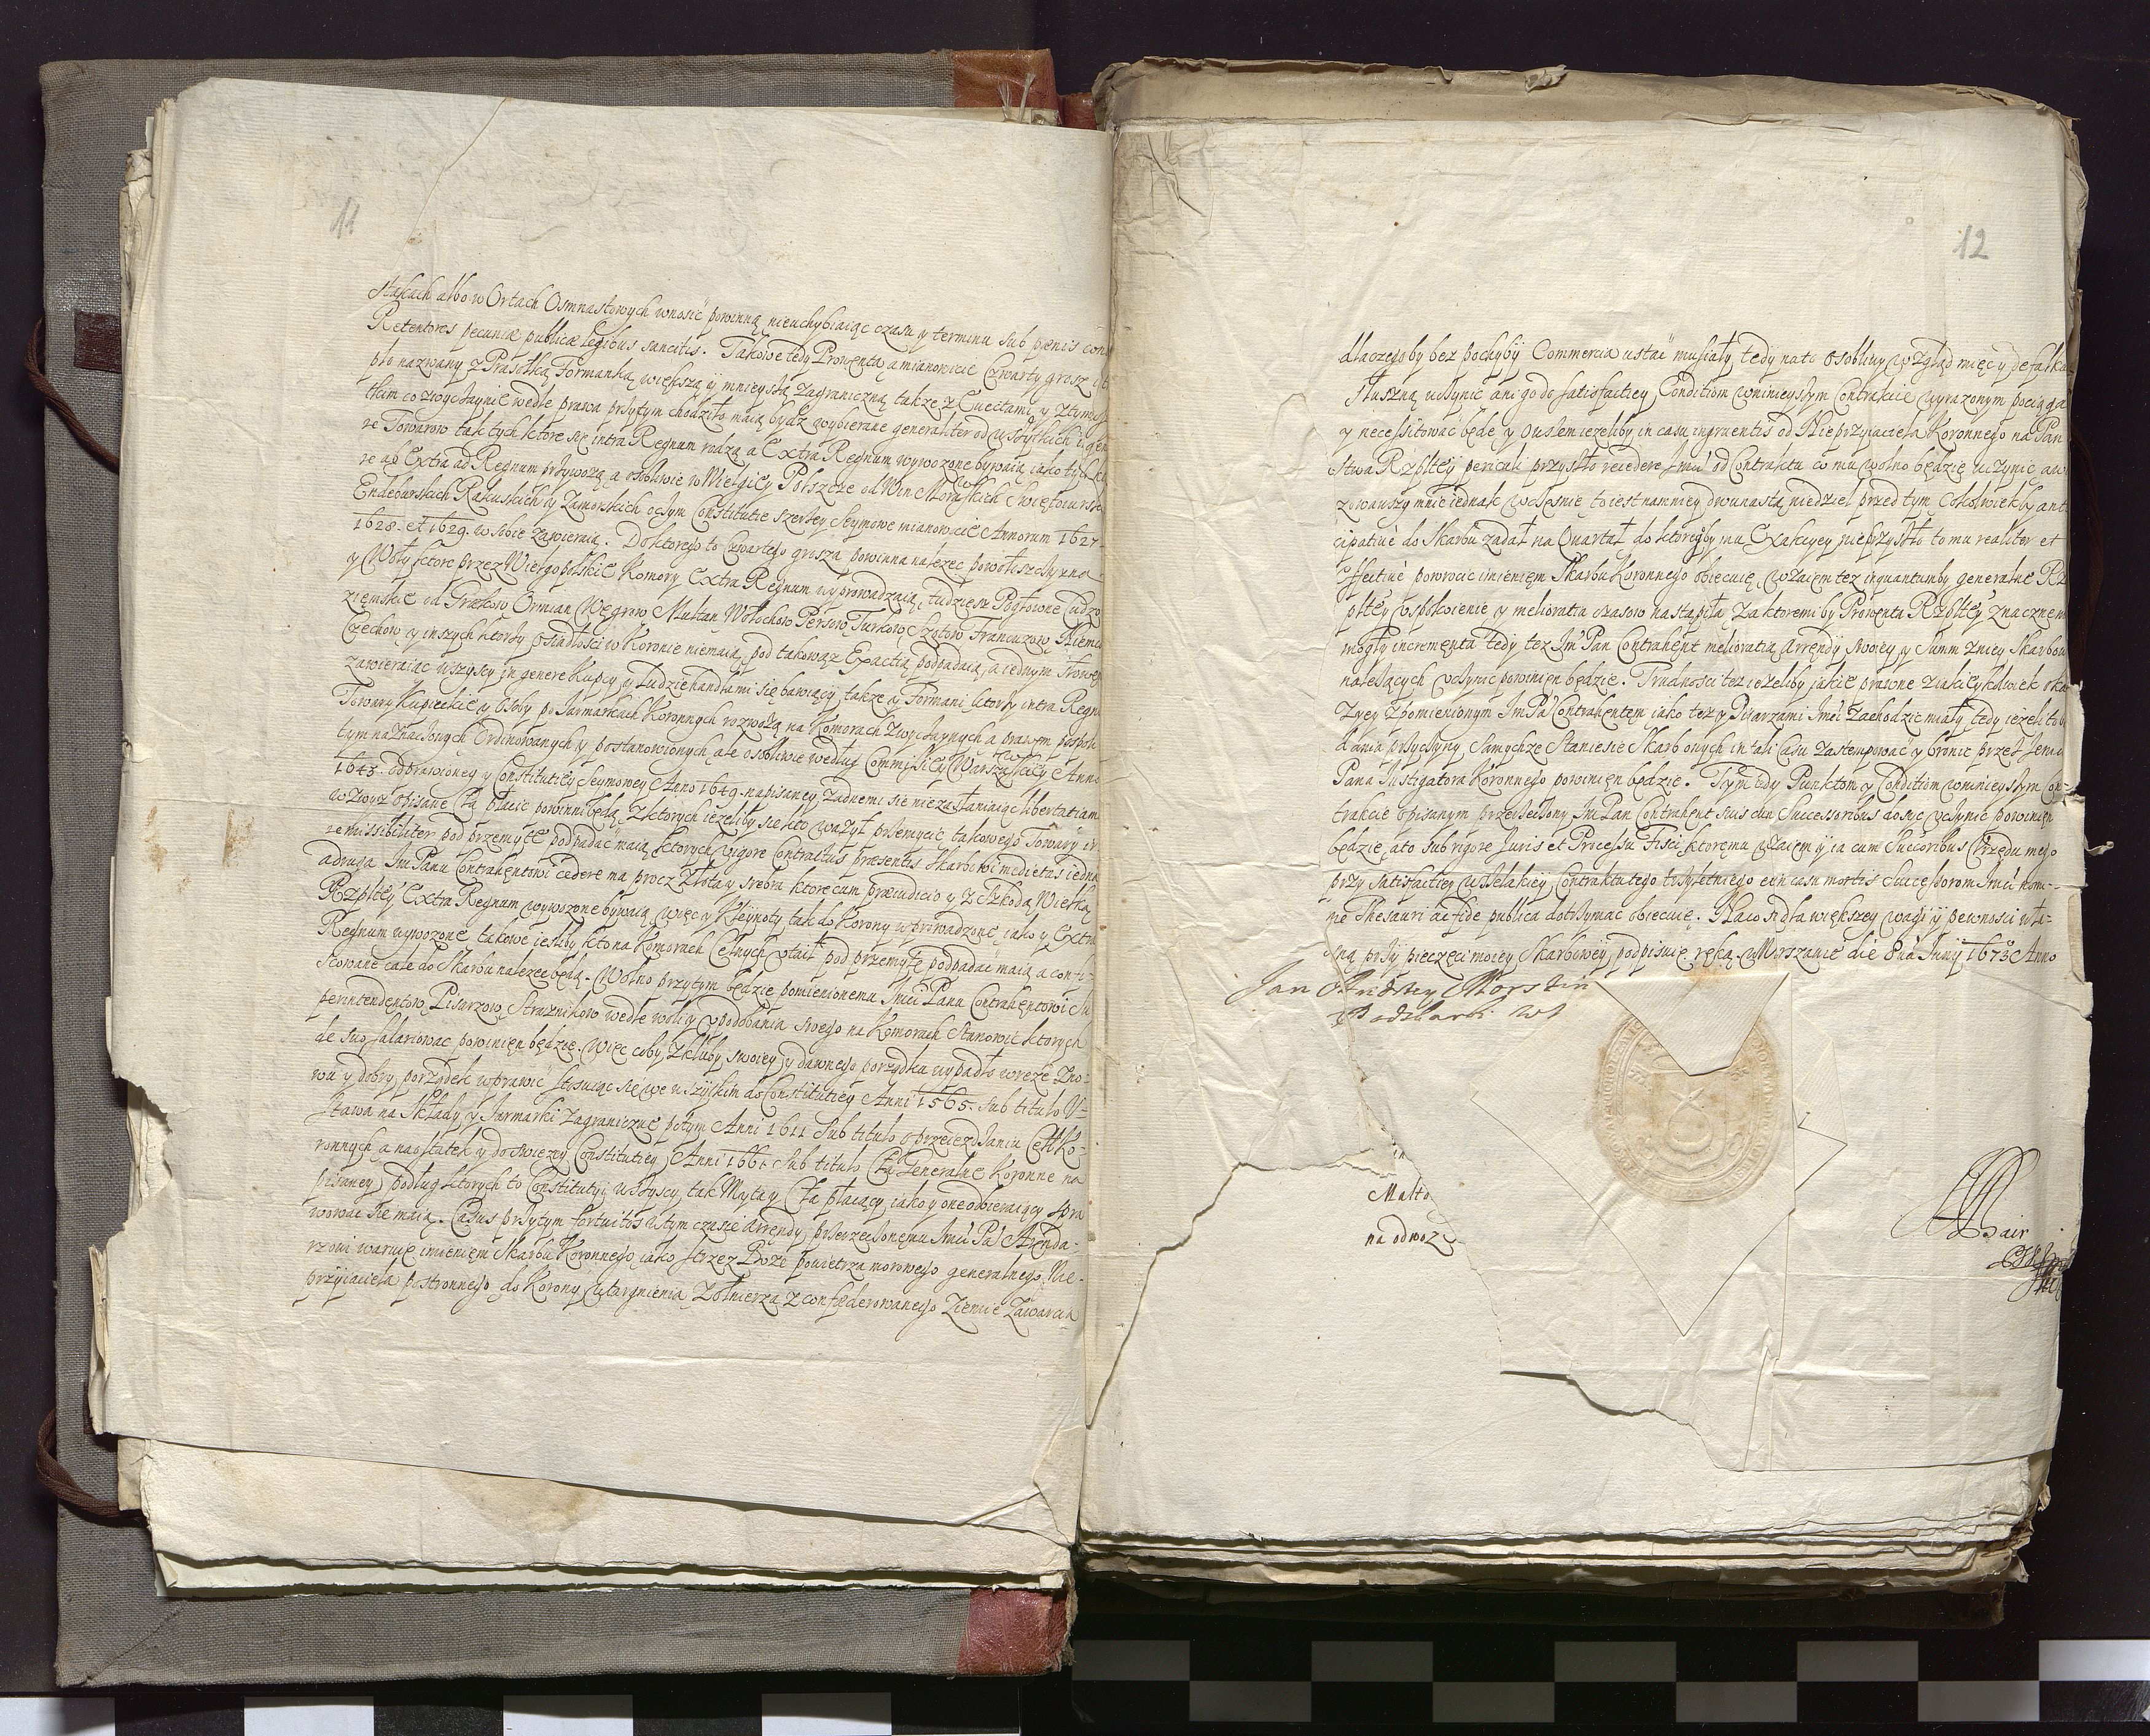 11
stakach albo w Ortach Osmnastowych wnosić powinną nieuchybiaiąc czasu y terminu sub pœnis con
Retentores pecuniæ publicæ legibus sancitis. Takowe tedy Prowenta, a mianowicie Czwarty grosz
pło nazwany z Prasołką Formanką większą y mnieyszą zagraniczną także z Evectami, y z tym
tkim co zwyczaynie wedle prawa przytym chodziło maią bydź wybierane generaliter od wszytkich in gen
re Towarow tak tych ktore się intra Regnum rodzą a Extra Regnum wywożone bywaią iako tych
re ab Extra ad Regnum przywożą, a osobliwie w Wielgiey Polszcze od Win Morawskich Swiętoiurskich
Endebarskich Rakuskich y Zamorskich oczym Constitutie szerzey Seymowe mianowicie Annorum 1627
1628. et 1629. w sobie zawieraią. Do ktorego to Czwartego grosza powinna należec powołowszczyzna
y Woły ktore przez Wielgopolskie Komory Extra Regnum wyprowadzaią, tudziesz Pogłowne Cudzo
ziemskie od Grekow Ormian Węgrow Multan Wołochow Persow Turkow Szotow Francuzow Niemcow
Czechow y inszych ktorzy osiadłości w Koronie niemaią, pod takową ż Exactią podpadaią, a iednym słowem
zawieraiąc wszyscy in genere Kupcy y Ludzie handlami się bawiący także y Formani ktorzy intra Regn
Towary Kupieckie y Osoby po Jarmarkach Koronnych rozwożą na Komorach Zwyczaynych a prawem pospoli
tym naznaczonych Ordinowanych y postanowionych ale osobliwie według Commissiey Warszawskiey Anno
1643. odprawioney y Constitutiey Seymowey Anno 1649. napisaney, żadnemi się niezasłaniaiąc libertatiami
wzwyż opisane Cła płacic powinni będą, z ktorych ieżeliby się kto ważył przemycic takowego Towary ir
remissibiliter pod przemytę podpadać maią, ktorych vigore Contractus præsentis Skarbowi medietas iedna
a druga Jm Panu Contrahentowi cedere ma procz Złota y srebra ktore cum præiudicio y z Szkodą Wielką
Rzpltey Extra Regnum wywożone bywaią, więc y Kleynoty tak do Korony wprowadzone, iako y Extra
Regnum wywożone, takowe iesliby kto na Komorach Celnych vtaił pod przemytę podpadać maią a confi-
scowane całe do Skarbu należec będą. Wolno przytym będzie pomienionemu Jmci Panu Contrahentowi Su
perintendentow, Pisarzow, Strażnikow wedle woli y vpodobania swego na Komorach Stanowic ktorych
de suo salariowac powinien będzie. Więc coby z kluby swoiey y dawnego porządku wypadło w rezę zno-
wu y dobry porządek wprawić stosuiąc się we wszytkim do Constitutiey Anni 1565. sub titulo V-
stawa na Składy y Jarmarki zagraniczne potym Anni 1611 sub titulo o przeiezdzaniu Ceł Ko-
ronnych a naostatek y do swiezey Constitutiey Anni 1661 sub titulo Cła Generalne Koronne na
pisaney, podług ktorych to Constitutyi wszyscy tak Myta y Cła płacący, iako y one odbieraiący spra
wowac się maią. Casus przytym fortuitos w tym czasie Arrendy, przerzeczonemu Jmci Pa Arenda-
rzowi waruię imieniem Skarbu Koronnego, iako strzez Boże powietrza morowego generalnego, Nie-
przyiaciela postronnego do Korony wtargnienia, Zołnierza z confæderowanego Ziemie Zawarcia
12
dlaczegoby bez pochyby Commercia ustać musiały, tedy nato osobliwy wzgląd mieć y defalkę
słuszną uczynić ani go do satisfactiey Conditiom w ninieyszym Contrakcie wyrazonym pociąga
y necessitować będę y owszem ieżeliby in casu ingruentis od Nieprzyiaciela Koronnego na Pan
stwa Rzpltey periculi przyszło recedere Jmci od Contraktu co mu wolno będzie uczynic aw
zowawszy mnie iednak wczesnie to iest namniey dwunastą niedziel przed tym Cokolwiekby ant
cipative do Skarbu zadał na Quartał do ktoregoby mu Exakcyey nieprzyszło to mu realiter et
effective powrocic imieniem Skarbu Koronnego obiecuię, wzaiem tez inquantumby generalne Rz
pltey Vspokoienie y melioratia czasow nastąpiła za ktoremi by Prowenta Rzpltey znacznem
mogły incrementa tedy tez Jm Pan Contrahent melioratią Arrendy swoiey y Summ z niey Skarbow
należących uczynic powinien będzie. Trudności też ieżeliby iakie prawne z iakieykolwiek oka
zyey z pomienionym Jm Pa Contrahentem iako też y Pisarzami Jmci zachodzic miały, tedy ieżeli to
dania przyczyny samychże Staniesie Skarb onych in tali casu zastempować y bronic przez Jemci
Pana Instigatora Koronnego powinien będzie. Tym tedy Punktom y Conditiom w ninieyszym Con-
trakcie opisanym przerzeczony Jm Pan Contrahent suis cum Successoribus dosyc uczynic powinien
będzie, ato sub rigore Juris et Processu Fisci, ktoremu wzaiem y ia cum Succoribus Vrzędu mego
przy satisfactiey wszelakiey Contraktu tego trzyletniego etin casu mortis Successorom Jmci nomi-
ne Thesauri ac fide publica dotrzymać obiecuię. Na co dla większey wagi y pewnosci wła-
sną przy pieczęci moiey Skarbowey podpisuię ręką w Warszawie die 8va Junij 1673 Anno
Jan Andrzey Morstin
Podskarbi WK
Malto
na odwoz